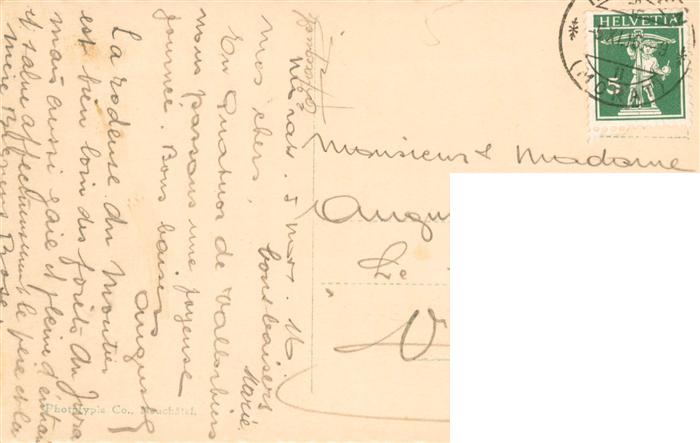 Morat. 5 mars. 16
Mos chers,
Bons baisers
Marie.
En quatuor de Vallorbiers
nous passons une joyeuse
journée. Bons baisers
Auguste
La rodeuse du Moutier
est bien loin des forêts du Jura
mais aussi gaie et pleine d'entrain
et salue affectueusement le père et la
mère
Rose
Monsieur & Madame
Augu
V
HELVETIA
5
(MORAT)
Phototypie Co., Neuchâtel.